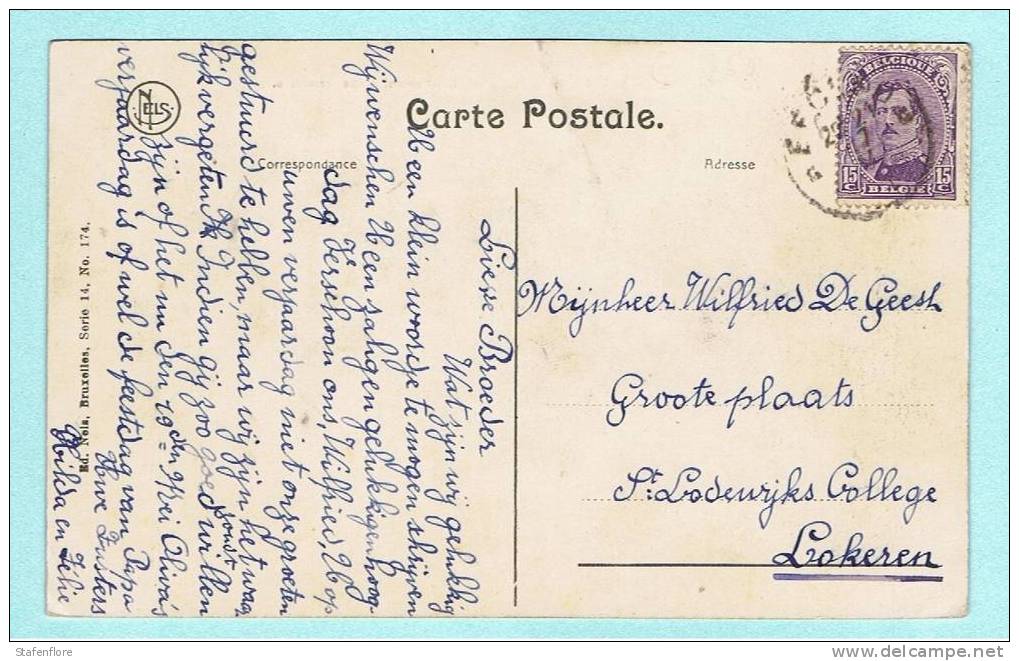 Carte Postale.
Correspondance
Adresse
BELGIQUE
15 C
15 C
BELGIE
NELS
Ed. Nels, Bruxelles, Serie 14, No. 174.
Lieve Broeder
Wat zijn wij gelukkig
U een klein woordje te mogen schrijven
Wij wenschen U een zaligen gelukkigen hoog-
dag Verschoon ons, Wilfried, U op
uwen verjaardag niet onze groeten
gestuurd te hebben, maar wij zijn het waar-
lijk vergeten. Indien gij zoo goed willen
zijn of het nu den 19den Mei Oliva's
verjaardag is of wel de feestdag van Papa
Uwe Zusters
Hilda en Zelie
Mijnheer Wilfried De Geest
Groote plaats
St. Lodewijks College
Lokeren
Stafenflore
www.delcampe.net